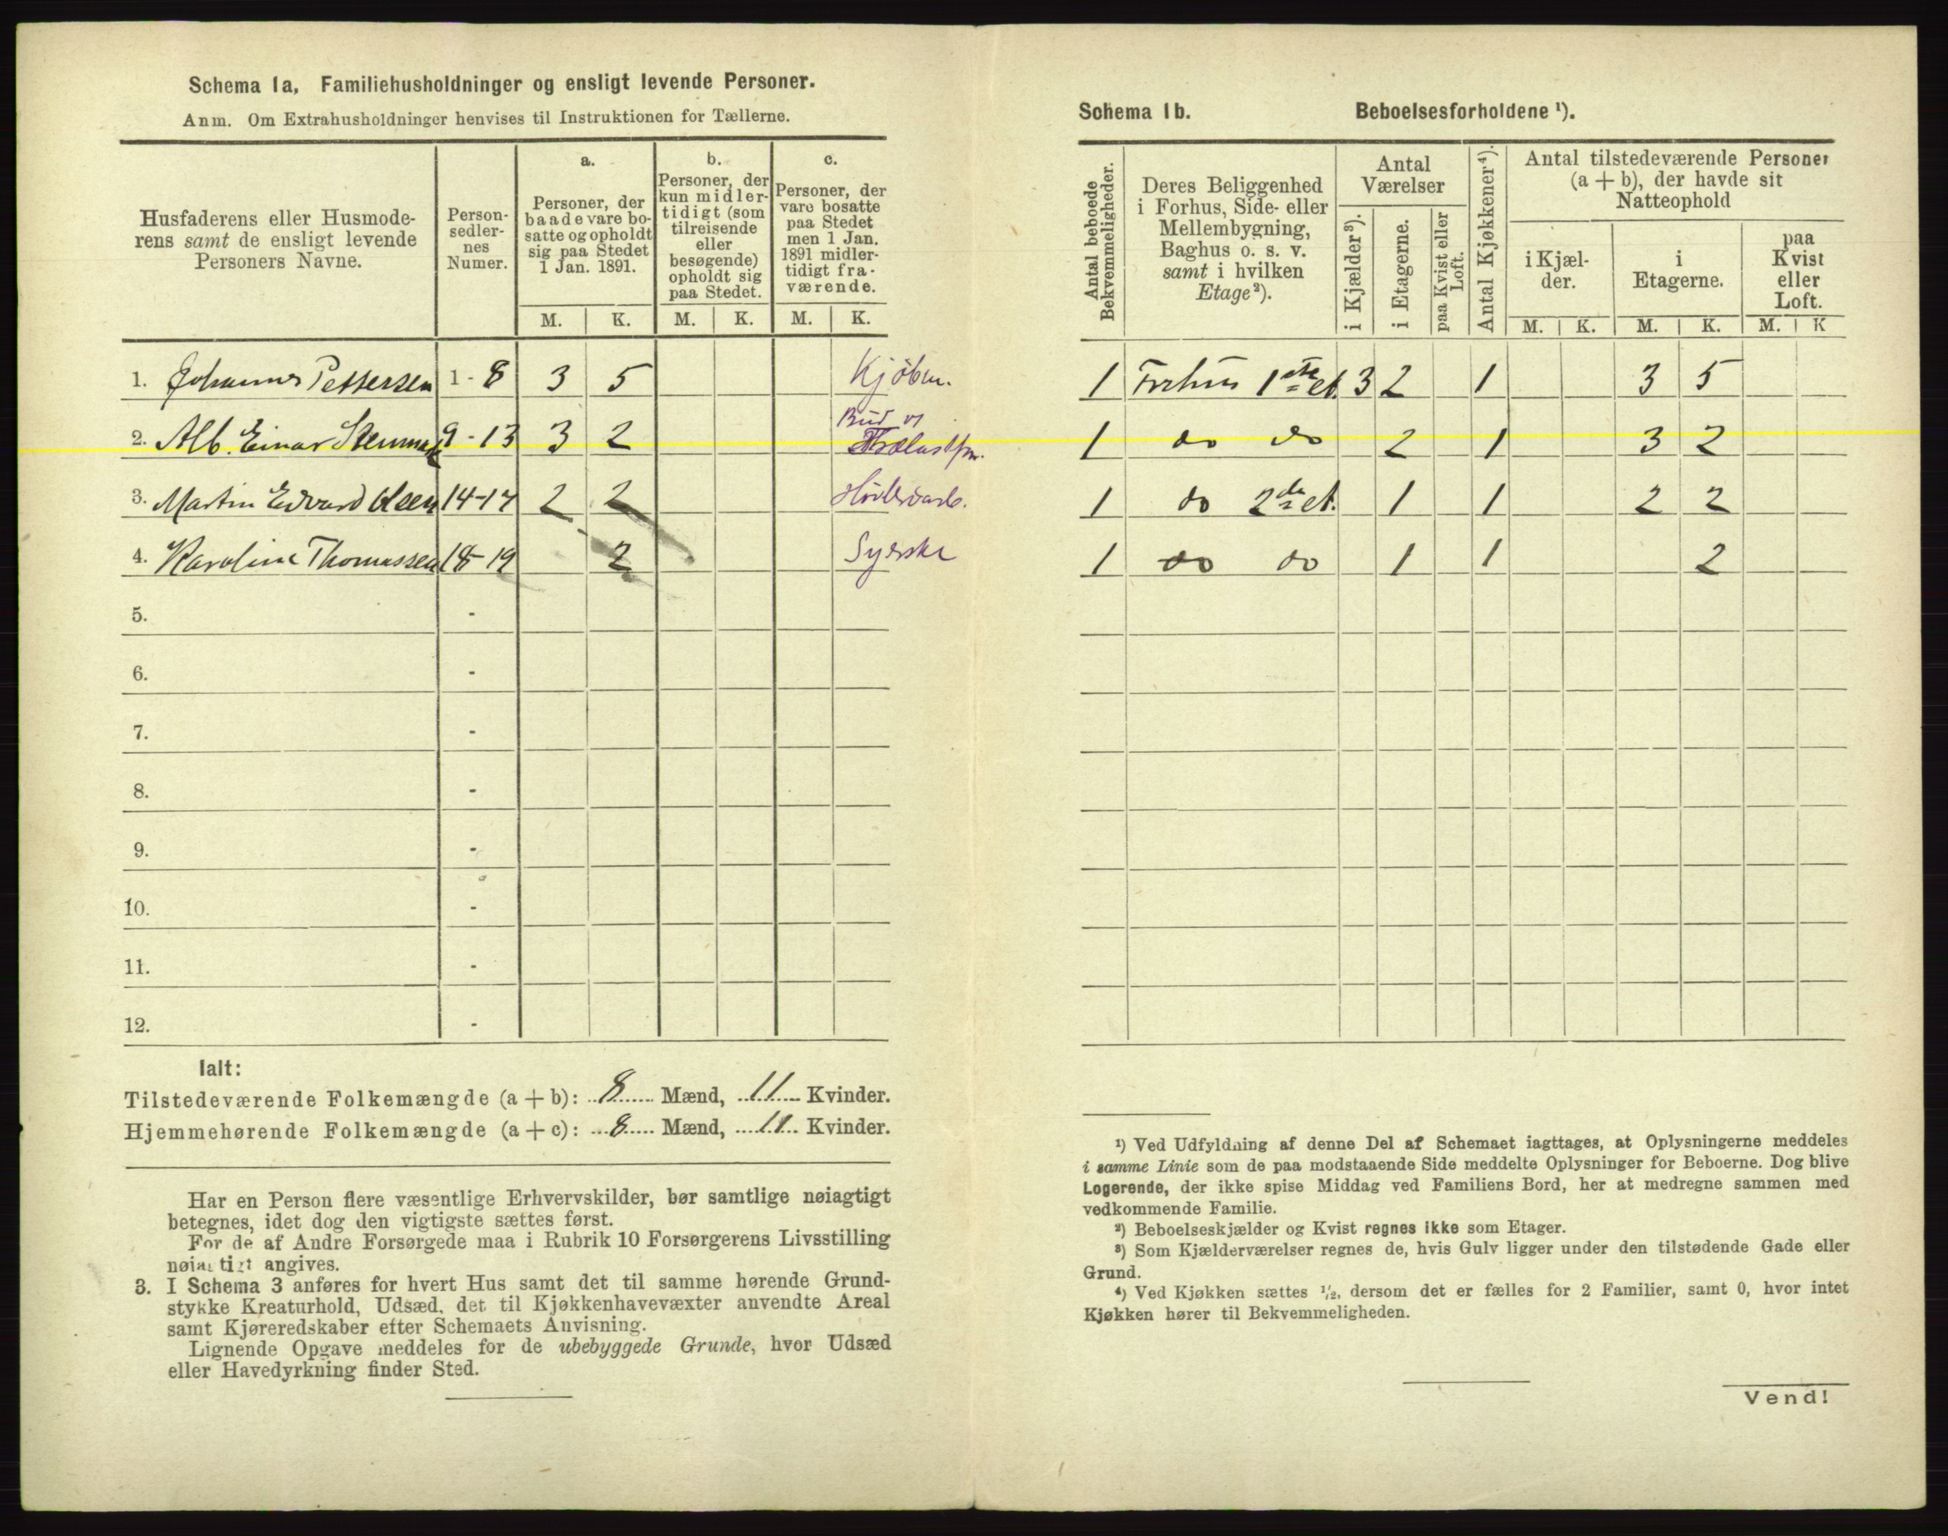 Schema 1a, Familiehusholdninger og ensligt levende Personer.
Anm. Om Extrahusholdninger henvises til Instruktionen for Tællerne.
Husfaderens eller Husmode-
rens samt de ensligt levende
Personers Navne.
Person-
sedler-
nes
Numer.
a.
Personer, der
baade vare bo-
satte og opholdt
sig paa Stedet
1 Jan. 1891.
b.
Personer, der
kun midler-
tidigt (som
tilreisende
eller
besøgende)
opholdt sig
paa Stedet.
c.
Personer, der
vare bosatte
paa Stedet
men 1 Jan.
1891 midler-
tidigt fra-
værende.
M. K. M. K. M. K.
1. Johannes Pettersen 1 - 8 3 5 Kjöbm.
2. Alb. Einar 9 - 13 3 2 Bud v/
3. Martin Edvard Olsen 14 - 17 2 2
4. Karoline Thomassen 18 - 19 2 Syerske
5. -
6. -
7. -
8. -
9. -
10. -
11. -
12. -
Ialt:
Tilstedeværende Folkemængde (a + b): 8 Mænd, 11 Kvinder.
Hjemmehørende Folkemængde (a + c): 8 Mænd, 11 Kvinder.
Har en Person flere væsentlige Erhvervskilder, bør samtlige nøiagtigt
betegnes, idet dog den vigtigste sættes først.
For de af Andre Forsørgede maa i Rubrik 10 Forsørgerens Livsstilling
nøiagtigt angives.
3. I Schema 3 anføres for hvert Hus samt det til samme hørende Grund-
stykke Kreaturhold, Udsæd, det til Kjøkkenhavevæxter anvendte Areal
samt Kjøreredskaber efter Schemaets Anvisning.
Lignende Opgave meddeles for de ubebyggede Grunde, hvor Udsæd
eller Havedyrkning finder Sted.
Schema 1b. Beboelsesforholdene ¹).
Antal beboede
Bekvemmeligheder.
Deres Beliggenhed
i Forhus, Side- eller
Mellembygning,
Baghus o. s. v.
samt i hvilken
Etage²).
Antal
Værelser
i Kjælder³).
i Etagerne.
paa Kvist eller
Loft.
Antal Kjøkkener⁴).
Antal tilstedeværende Personer
(a + b), der havde sit
Natteophold
i Kjæl-
der.
i
Etagerne.
paa
Kvist
eller
Loft.
M. K. M. K. M. K
1 Forhus 1ste et. 3 2 1 3 5
1 do do 2 1 3 2
1 do 2de et. 1 1 2 2
1 do do 1 1 2
¹) Ved Udfyldning af denne Del af Schemaet iagttages, at Oplysningerne meddeles
i samme Linie som de paa modstaaende Side meddelte Oplysninger for Beboerne. Dog blive
Logerende, der ikke spise Middag ved Familiens Bord, her at medregne sammen med
vedkommende Familie.
²) Beboelseskjælder og Kvist regnes ikke som Etager.
³) Som Kjælderværelser regnes de, hvis Gulv ligger under den tilstødende Gade eller
Grund.
⁴) Ved Kjøkken sættes ½, dersom det er fælles for 2 Familier, samt 0, hvor intet
Kjøkken hører til Bekvemmeligheden.
Vend!